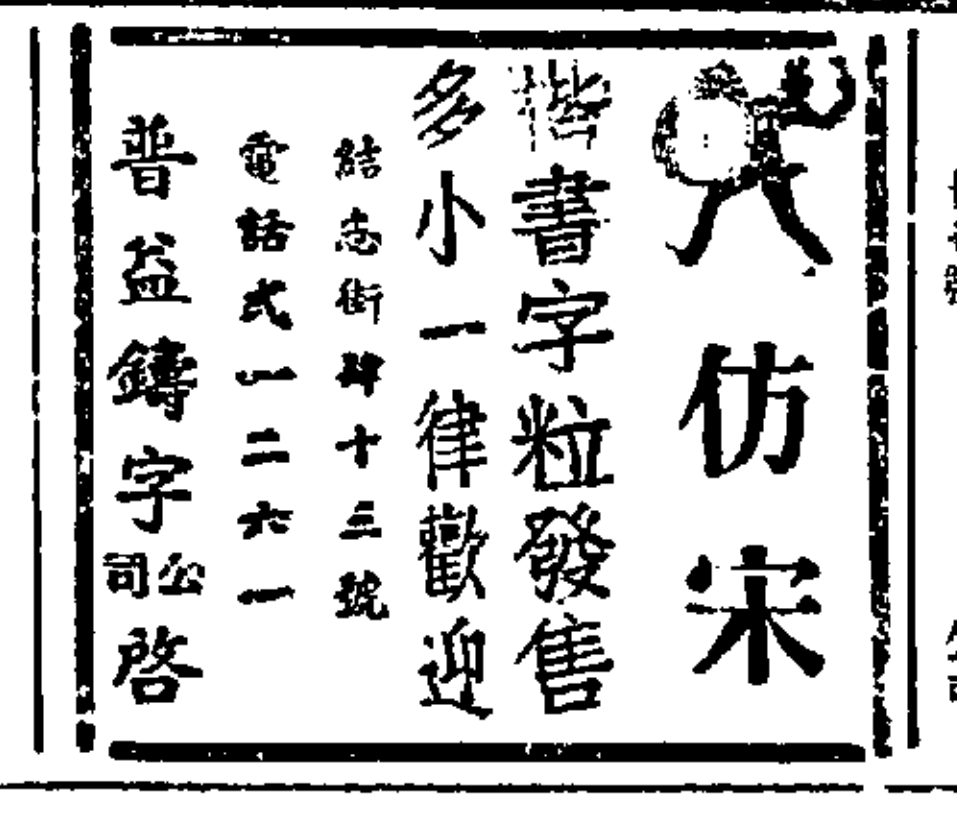 仿宋
楷書字粒發售
多小一律歡迎
結志街肆十三號
電話弍一二六一
普益鑄字公司啓